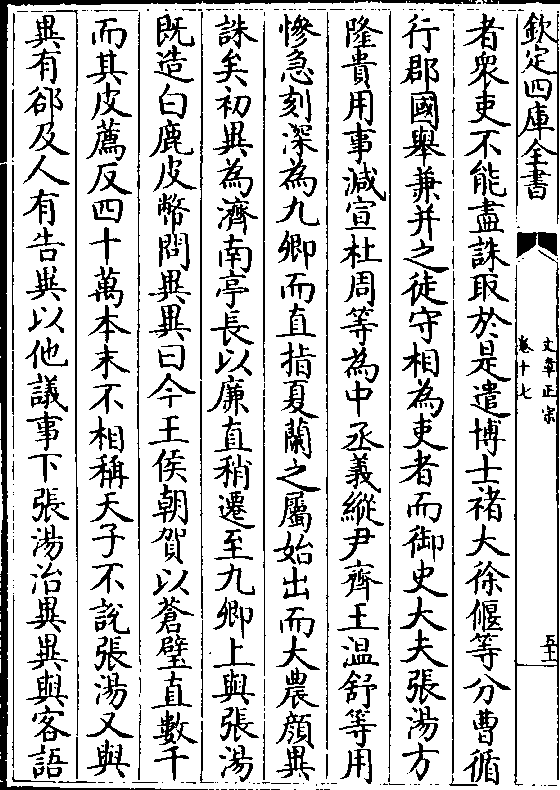 欽定四庫全書
文章正宗
卷十七
五十二
者衆吏不能盡誅取於是遣博士禇大徐偃等分曹循
行郡國舉兼并之徒守相為吏者而御史大夫張湯方
隆貴用事減宣杜周等為中丞義縱尹齊王温舒等用
慘急刻深為九卿而直指夏蘭之屬始出而大農顔異
誅矣初異為濟南亭長以廉直稍遷至九卿上與張湯
既造白鹿皮幣問異異曰今王侯朝賀以蒼璧直數千
而其皮薦反四十萬本末不相稱天子不說張湯又與
異有郤及人有告異以他議事下張湯治異異與客語